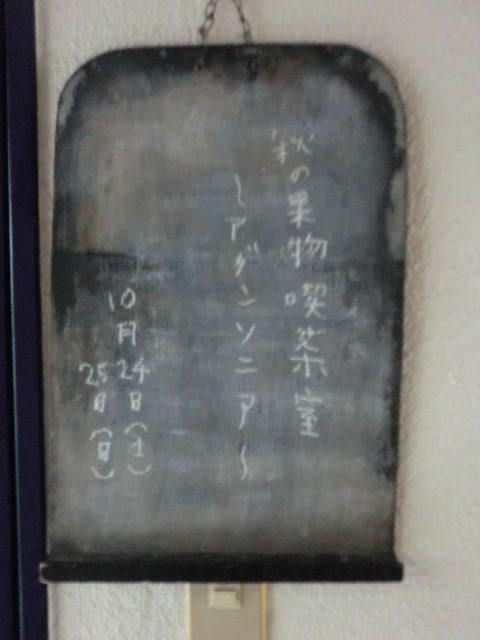 秋の果物喫茶室
～アダンソニア～
10月24日(土)
25日(日)